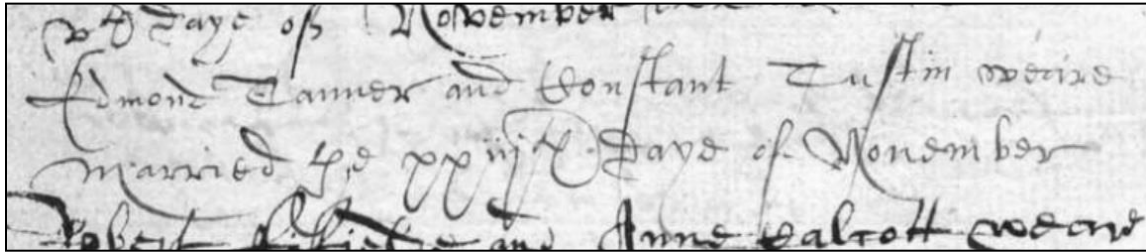 daye of November
Edmond Tanner and Constant Tustin weare
married the xxiijth daye of Nouember
Robert and Anne Calcott weare